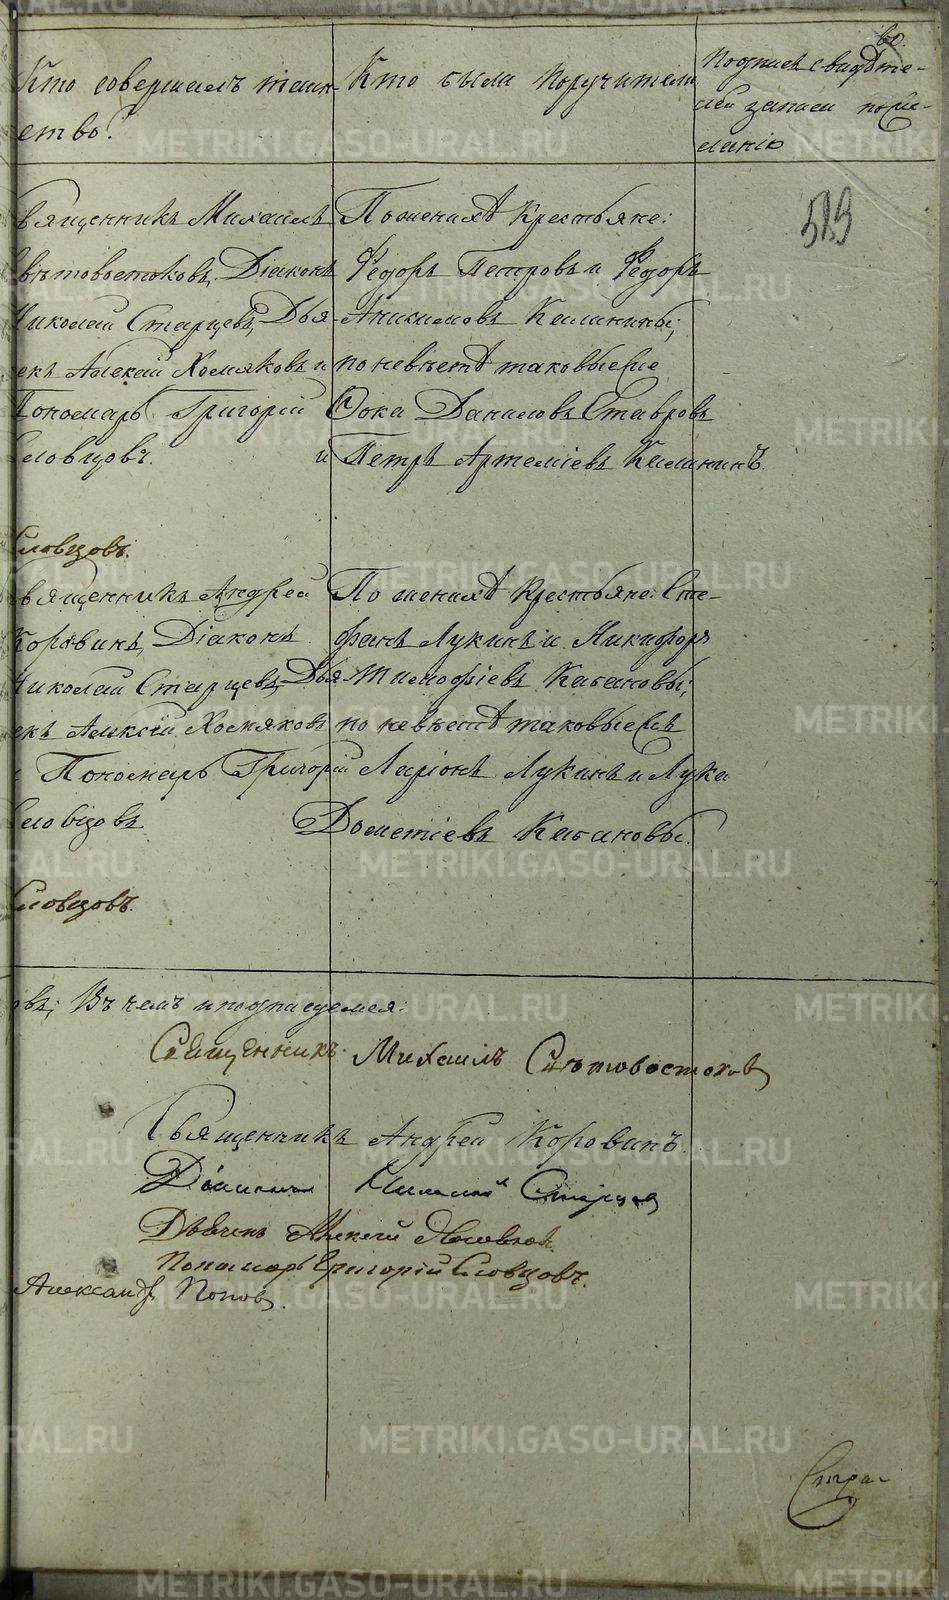 60.
Кто совершалъ таин-
ство.
Кто были поручители
Подпись свидѣте-
лей записи по же-
ланію
519
Священникъ Михаилъ
Свѣтовостоковъ, Діаконъ
Николай Старцевъ, Дья-
чекъ Алексій Хомяковъ и
Пономарь Григорій
Словцовъ.
По женихѣ крестьяне:
Ѳедоръ Петровъ и Ѳедоръ
Аникимовъ Калинины;
по невѣстѣ таковые же
Фока Даниловъ Ставровъ
и Петръ Артеміевъ Калининъ.
Словцовъ.
Священникъ Андрей
Коровинъ, Діаконъ
Николай Старцевъ, Дья-
чекъ Алексій Хомяковъ
и Пономарь Григорій
Словцовъ
По женихѣ крестьяне: Сте-
фанъ Лукинъ и Никифоръ
Тимофіевъ Кабановы;
по невѣстѣ таковые же
Ларіонъ Лукинъ и Лука
Дометіевъ Кабановы.
Словцовъ.
Въ чемъ и подписуемся:
Священникъ Михаилъ Свѣтовостоковъ
Священникъ Андрей Коровинъ.
Діаконъ Николай Старцовъ
Дьячекъ Алексій Хомяковъ
Пономарь Григорій Словцовъ.
Александръ Поповъ.
METRIKI.GASO-URAL.RU